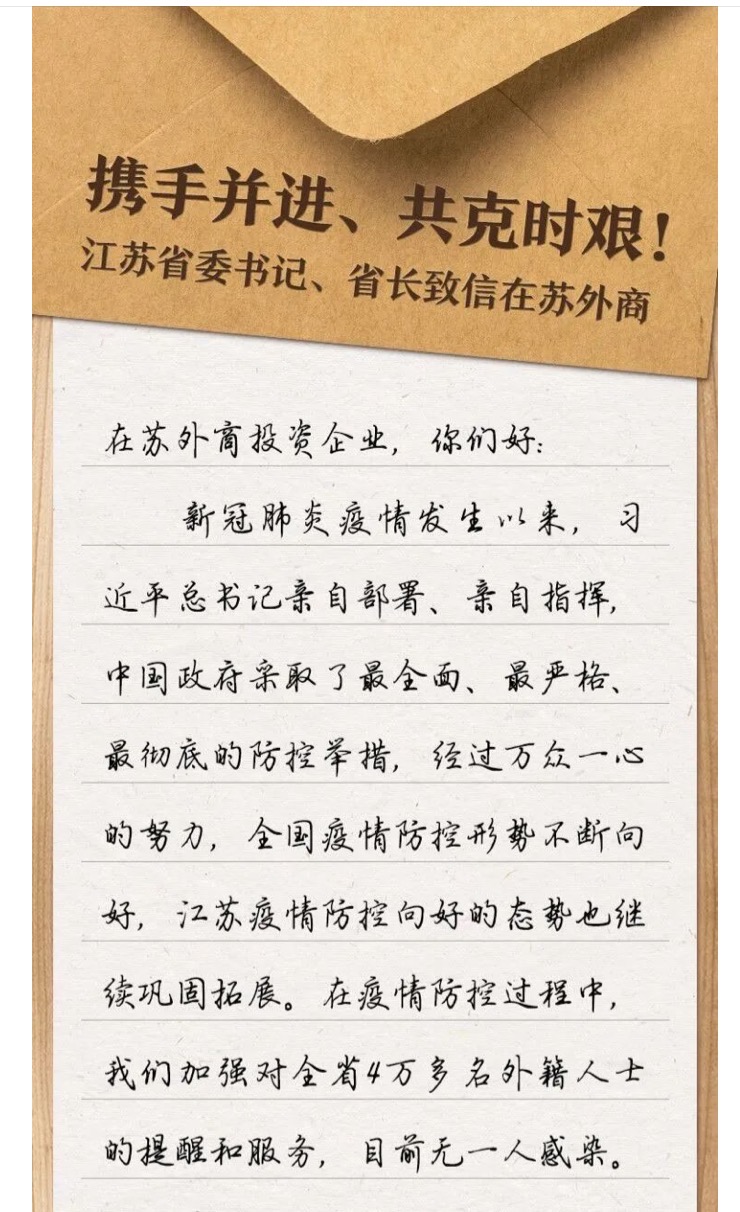 携手并进、共克时艰！
江苏省委书记、省长致信在苏外商
在苏外商投资企业，你们好：
新冠肺炎疫情发生以来，习
近平总书记亲自部署、亲自指挥，
中国政府采取了最全面、最严格、
最彻底的防控举措，经过万众一心
的努力，全国疫情防控形势不断向
好，江苏疫情防控向好的态势也继
续巩固拓展。在疫情防控过程中，
我们加强对全省4万多名外籍人士
的提醒和服务，目前无一人感染。